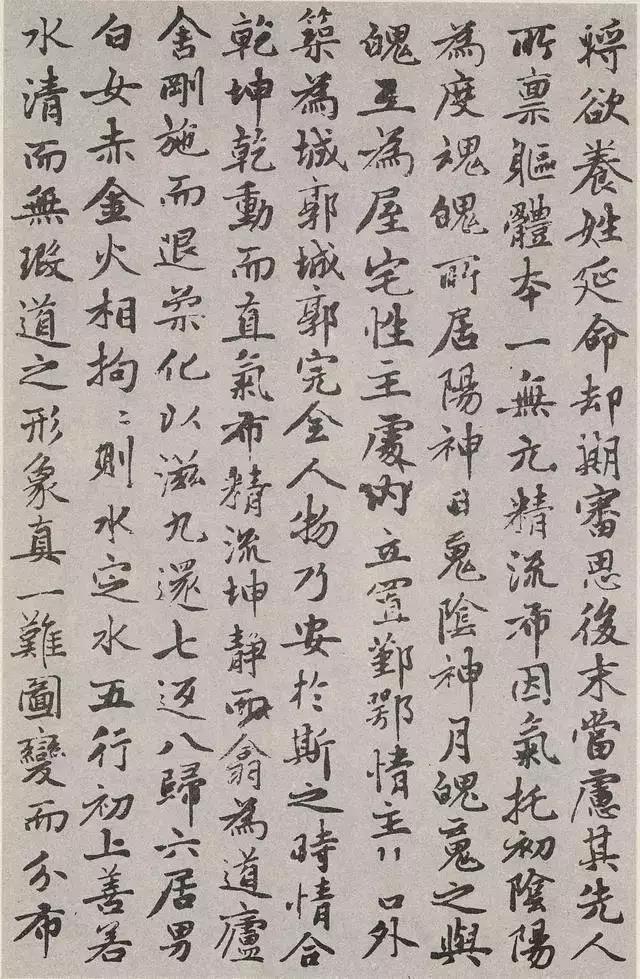 將欲養姓延命却期審思後末當慮其先人
所禀軀體本一無元精流布因氣托初陰陽
為度魂魄所居陽神日䰟陰神月魄䰟之與
魄互為屋宅性主處內立置鄞鄂情主〻口外
築為城郭城郭完全人物乃安於斯之時情合
乾坤乾動而直氣布精流坤静而翕為道廬
舍剛施而退柔化以滋九還七返八歸六居男
白女赤金火相拘〻則水定水五行初上善若
水清而無瑕道之形象真一難圖變而分布